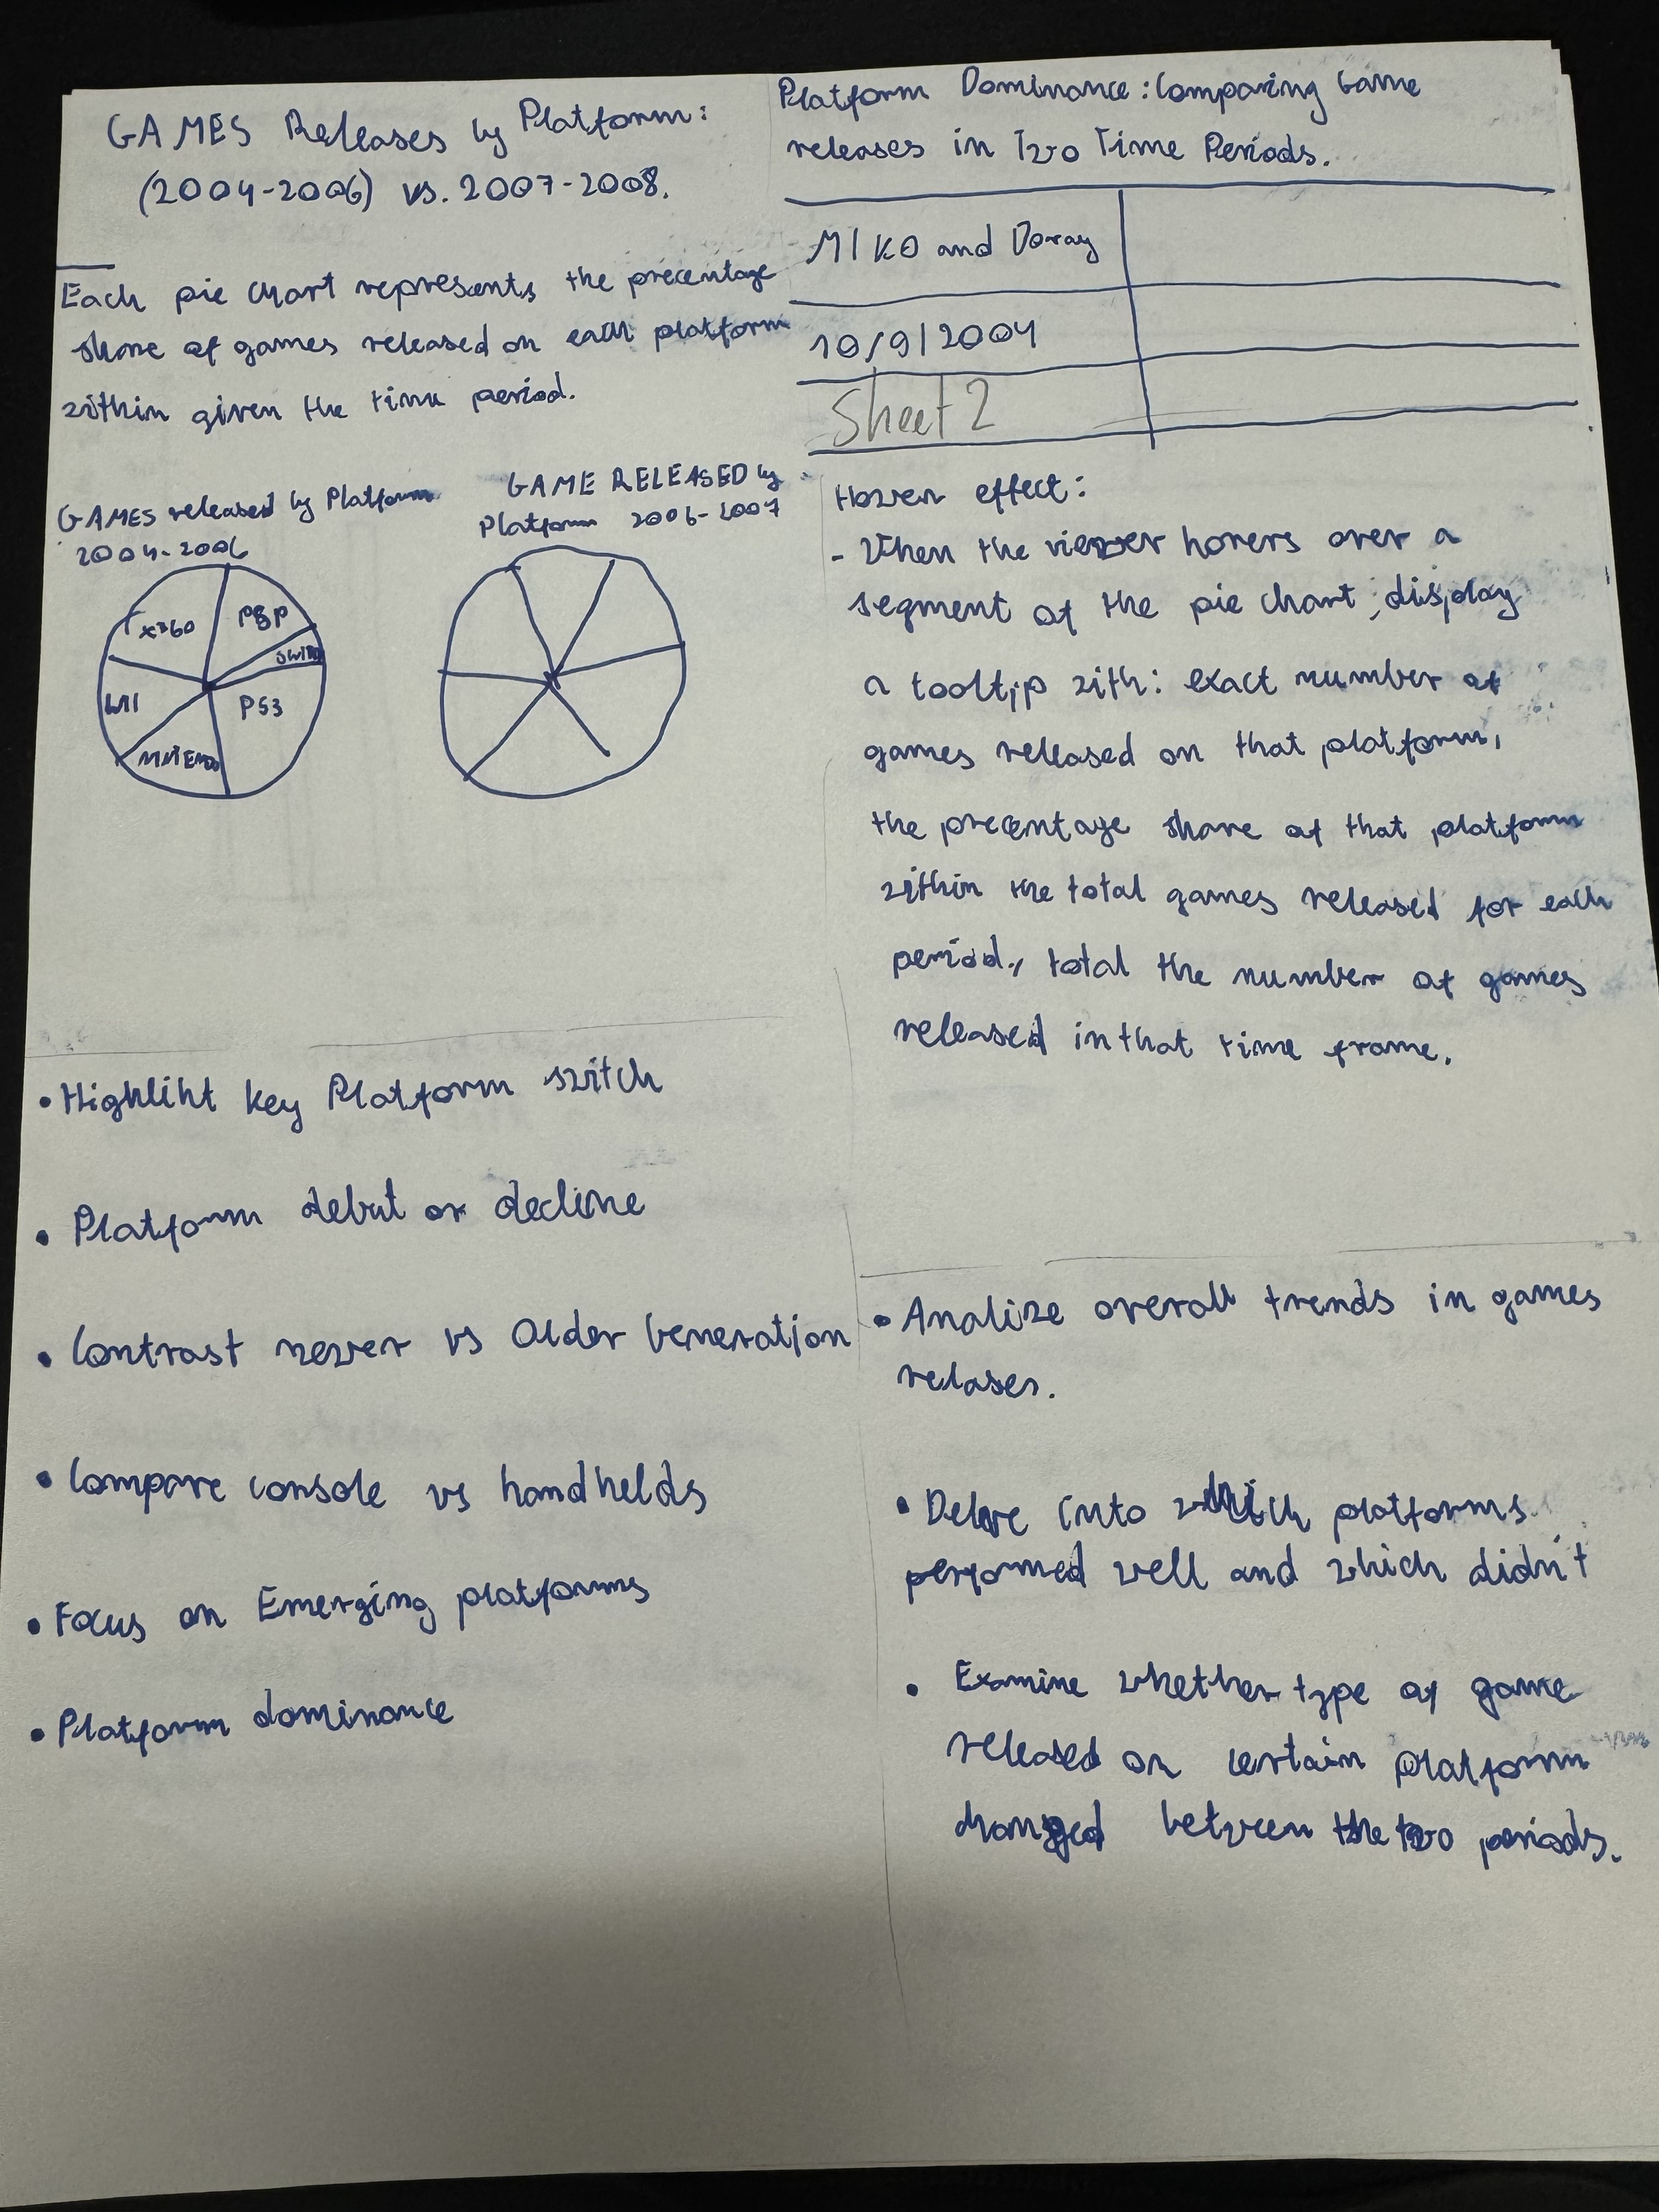 GAMES Releases by Platform:
(2004-2006) vs. 2007-2008.
Each pie chart represents the precentage
share of games released on each platform
within given the time period.
GAMES released by Platform
2004-2006
X360
PSP
WII
PS3
GAME RELEASED by
Platform 2006-2007
Platform Dominance: Comparing Game
releases in Two Time Periods.
MIKO and Doray
10/9/2004
Sheet 2
Hover effect:
- When the viewer hovers over a
segment of the pie chart, display
a tooltip with: exact number of
games released on that platform,
the precentage share of that platform
within the total games released for each
period, total the number of games
released in that time frame.
• Highliht key Platform switch
• Platform debut or decline
• Contrast newer vs Older Generation
• Compare console vs handhelds
• Focus on Emerging platforms
• Platform dominance
• Analize overall trends in games
relases.
• Delve into which platforms
performed well and which didn't
• Examine whether type of game
released on certain platform
changed between the two periods.